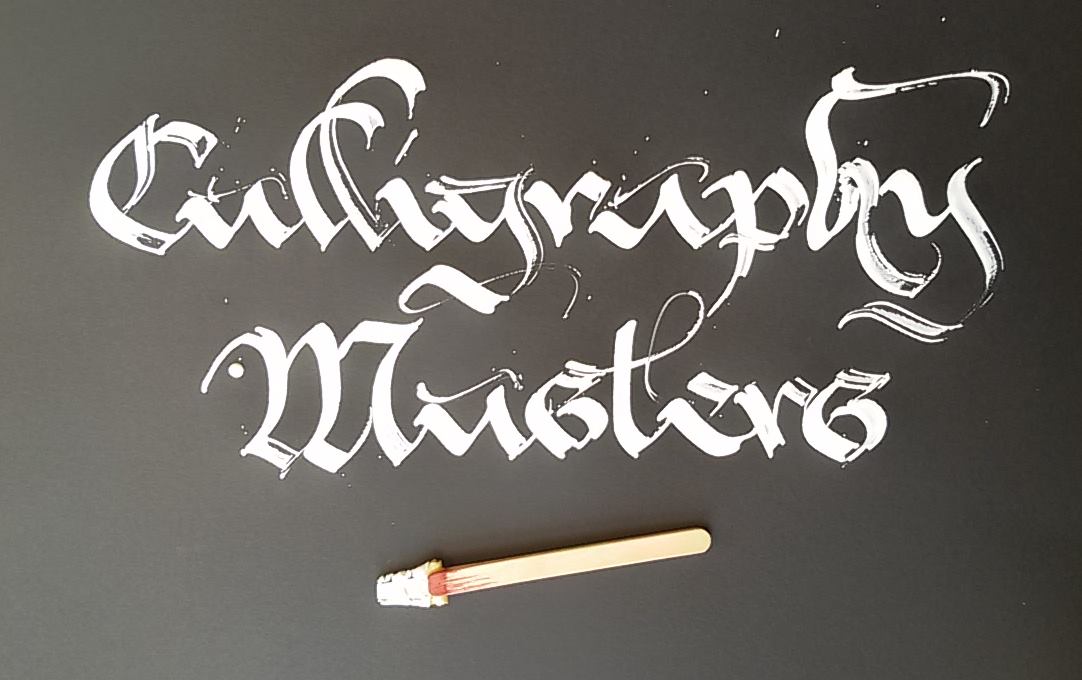 Calligraphy
Masters